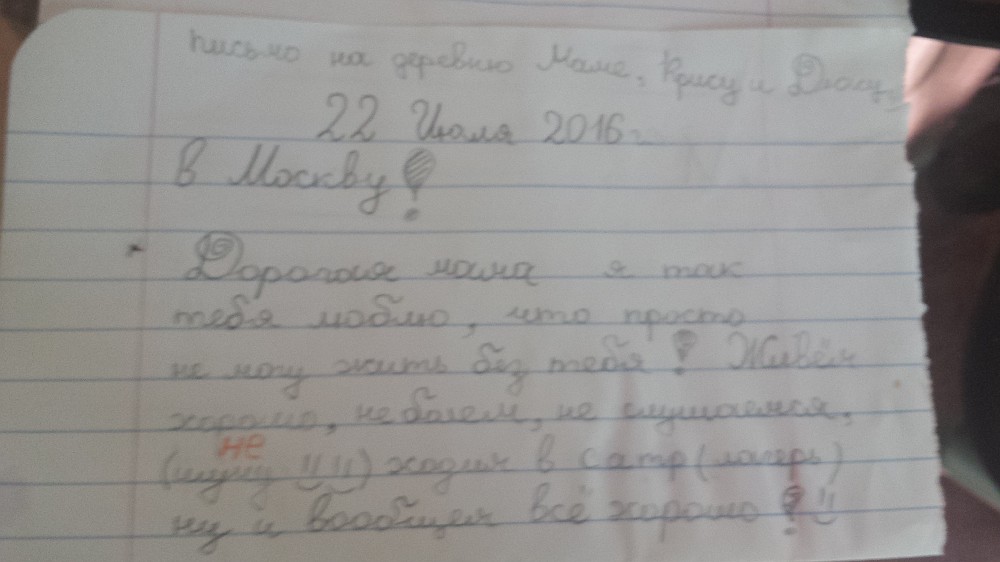 письмо на деревню Маме, Крису и Дюку.
22 Июля 2016г.
в Москву!
Дорогая мама я так
тебя люблю, что просто
не могу жить без тебя! Живём
хорошо, не болеем, не слушаемся,
не
(шучу !! !!) ходим в camp (лагерь)
ну и вообщем всё хорошо !